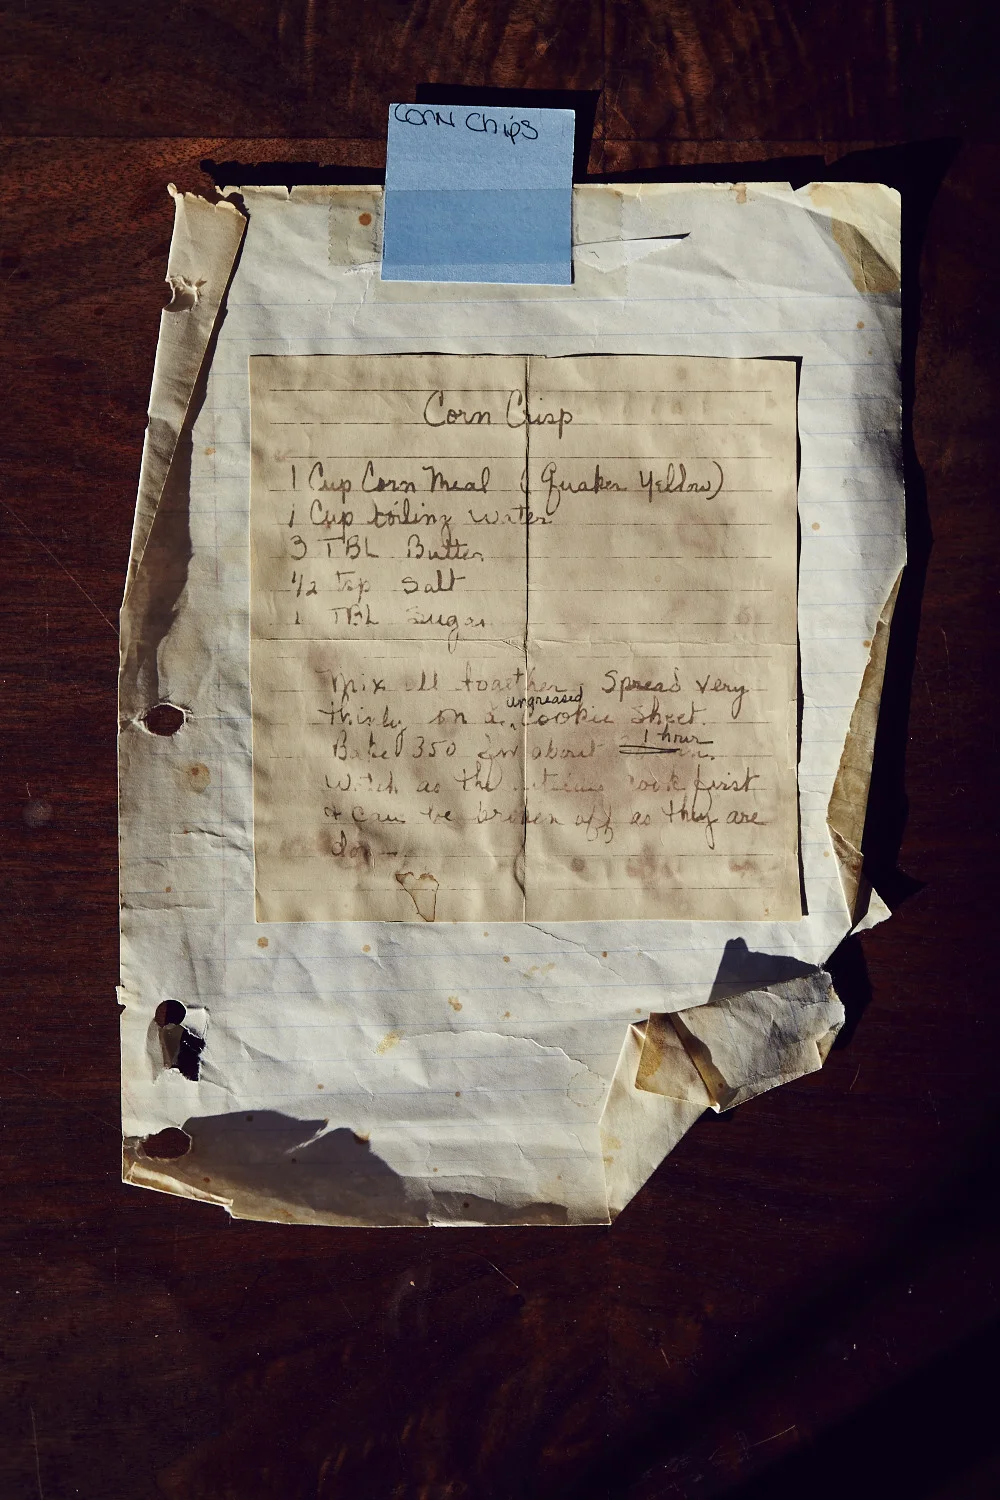 Corn Chips
Corn Crisp
1 Cup Corn Meal (Quaker Yellow)
1 Cup boiling water
3 TBL Butter
1/2 tsp Salt
1 TBL Sugar
Mix all together. Spread very
ungreased
thinly on a cookie sheet.
1 hour
Bake 350 for about
Watch as the cook first
+ can be broken off as they are